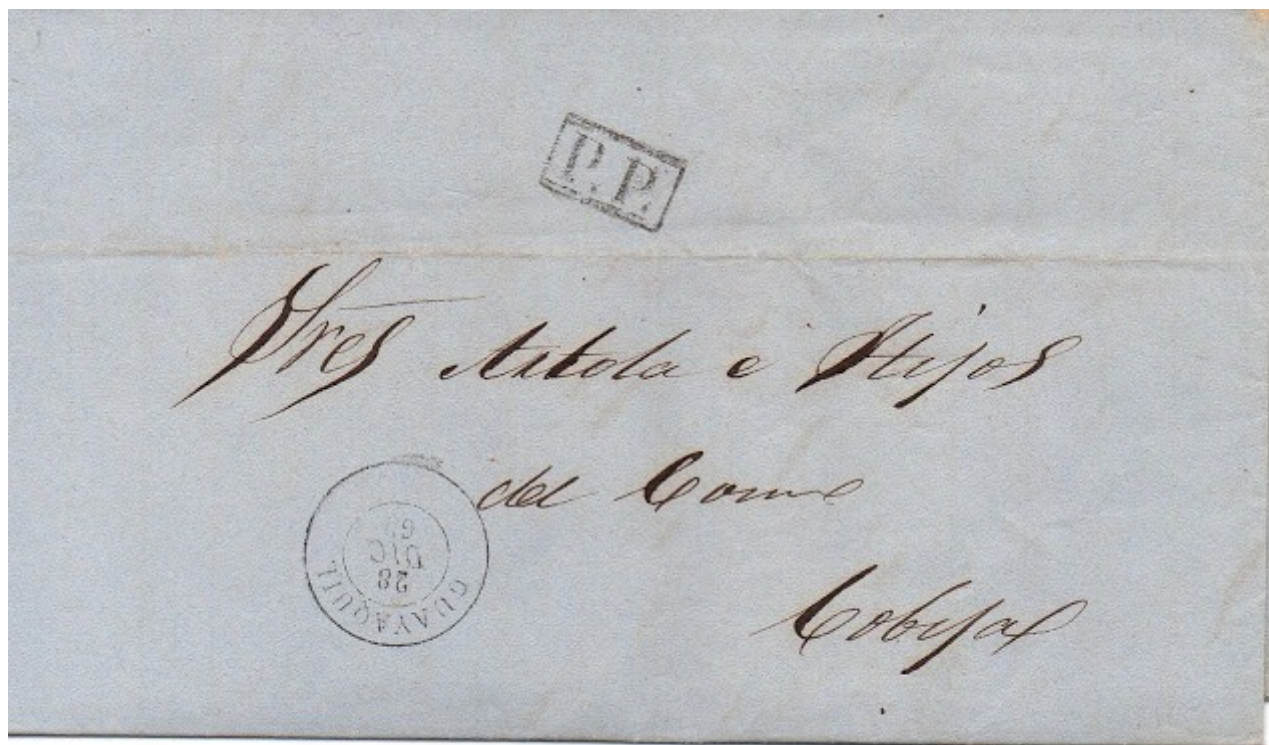 P.P.
Sres Artola e Hijos
del Come
Cobija
GUAYAQUIL
28
DIC